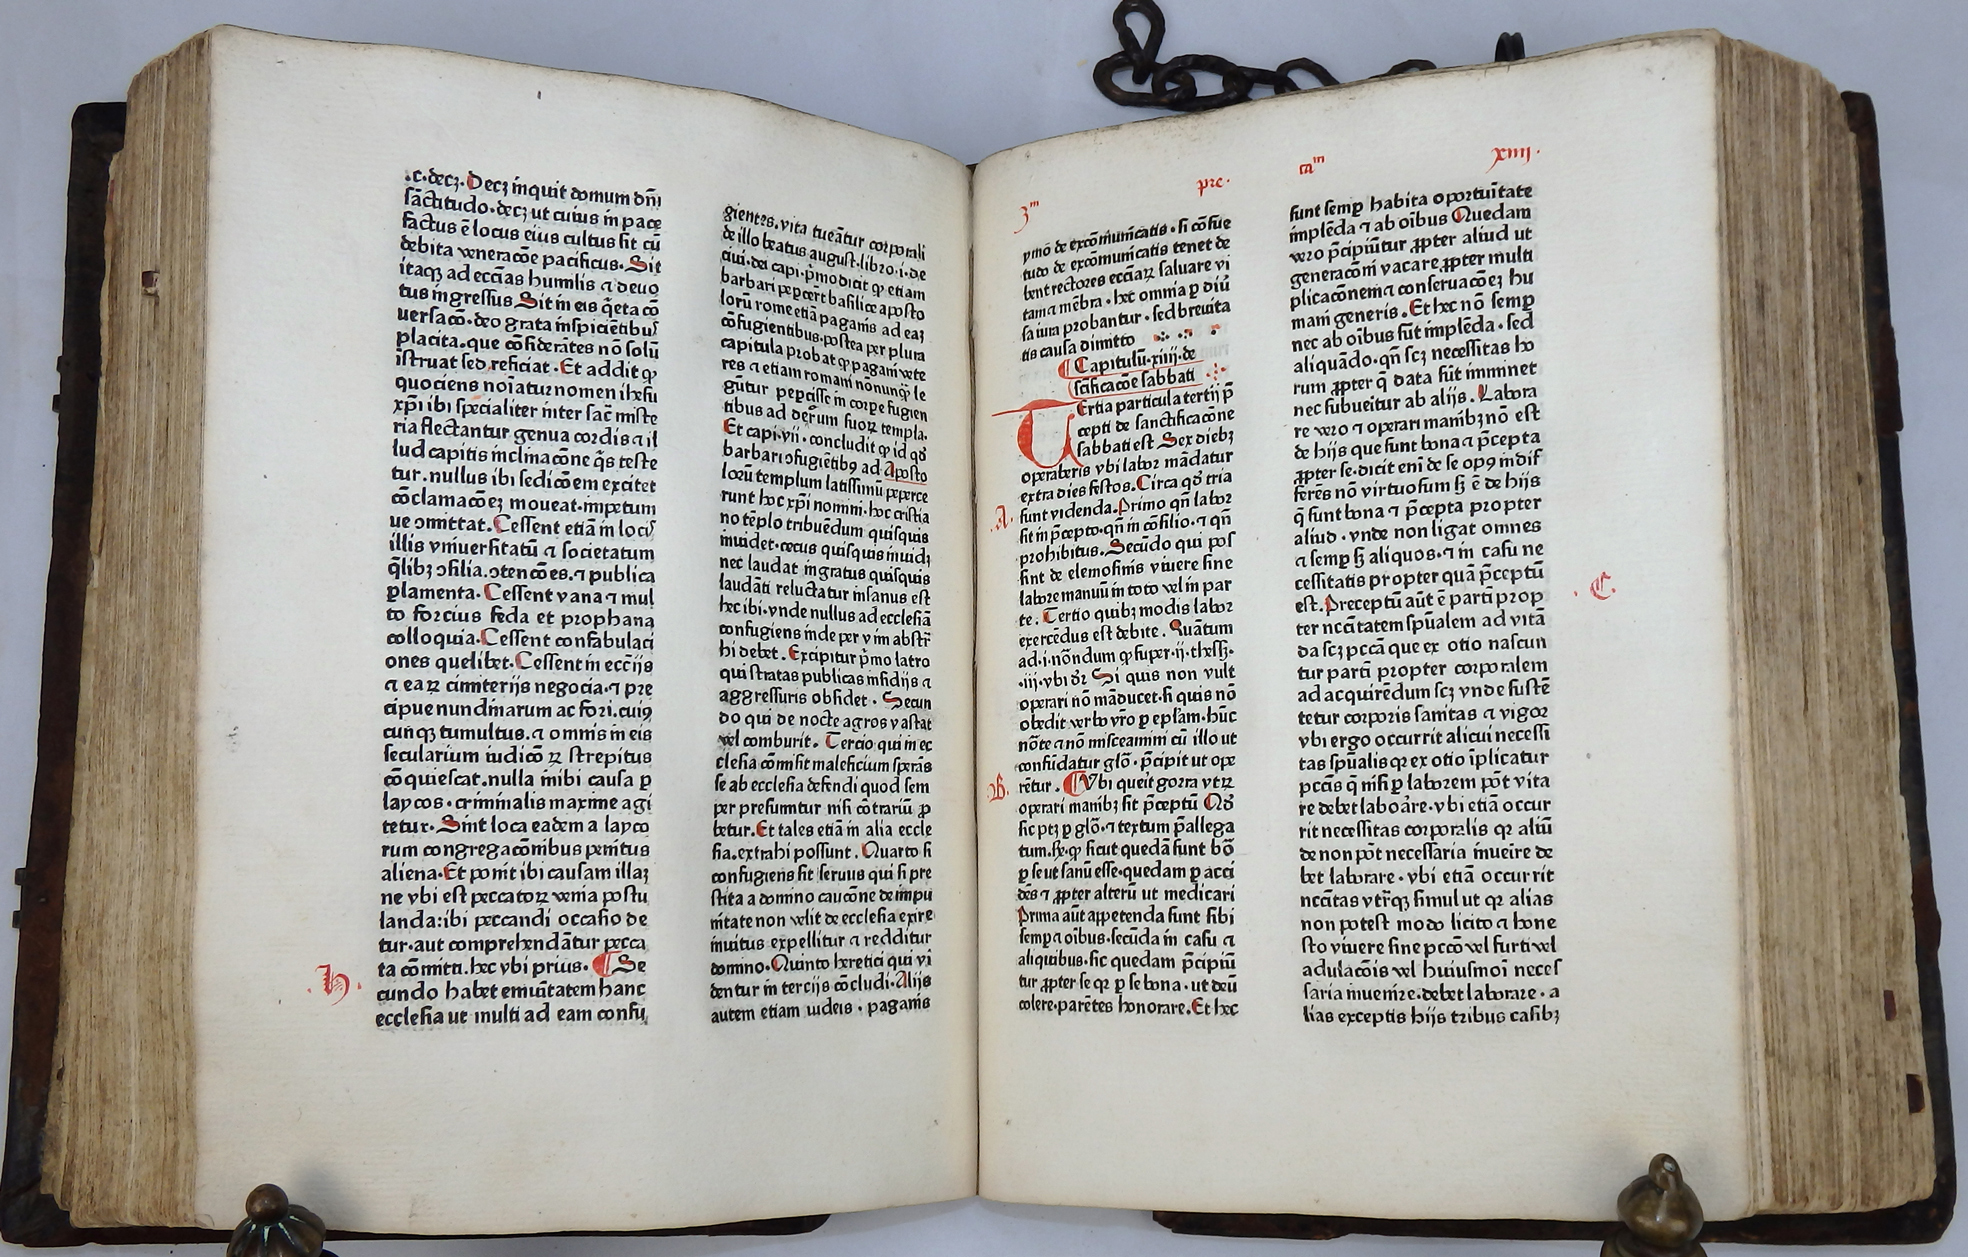 .c.decꝫ. Decꝫ inquit domum dn̄i
sāctitudo. decꝫ ut cuius in pace
factus ē locus eius cultus sit cū
debita veneracōe pacificus. Sit
itaqꝫ ad eccīas humilis ⁊ deuo
tus ingressus Sit in eis q̄eta cō
uersacō. deo grata inspiciētibus
placita. que cōsiderātes nō solū
īstruat sed reficiat. Et addit ꝙ
quociens noīatur nomen ihesu
xp̄i ibi specialiter inter sac̄ miste
ria flectantur genua cordis ⁊ il
lud capitis inclinacōne q̄s teste
tur. nullus ibi sedicōem excitet
cōclamacōeꝫ moueat. impetum
ue ꝯmittat. Cessent etiā in locis
illis vniuersitatū ⁊ societatum
q̄libꝫ ꝯsilia. ꝯtencōes. ⁊ publica
ꝑlamenta. Cessent vana ⁊ mul
to forcius feda et prophana
colloquia. Cessent confabulaci
ones quelibet. Cessent in eccīijs
⁊ earꝝ cimiterijs negocia. ⁊ pre
cipue nundinarum ac fori. cuiꝯ
cunqꝫ tumultus. ⁊ omnis in eis
secularium iudicōꝝ strepitus
cōquiescat. nulla inibi causa ꝑ
laycos. criminalis maxime agi
tetur. Sint loca eadem a layco
rum congregacōnibus penitus
aliena. Et ponit ibi causam illaꝫ
ne vbi est peccatoꝝ venia postu
landa: ibi peccandi occasio de
tur. aut comprehendātur pecca
ta cōmitti. hec vbi prius. Se
.h.
cundo habet emuītatem hanc
ecclesia ut multi ad eam confu
gientes. vita tueātur corporali
de illo beatus august. libro. i. de
ciui. dei capi. p̄mo dicit ꝙ etiam
barbari peꝑcert̄ basilice aposto
lorū rome etiā paganis ad eaꝫ
cōfugientibus. postea per plura
capitula probat ꝙ pagani vete
res ⁊ etiam romani nōnunq̄ le
gūtur peꝑcisse in corꝑe fugien
tibus ad deꝝum suoꝝ templa.
Et capi. vii. concludit ꝙ id qd̄
barbari ꝯfugiētibꝯ ad Aposto
lorū templum latissimū peperce
runt hoc xp̄i nomini. hoc cristia
no tēplo tribuēdum quisquis
inuidet. cecus quisquis inuidꝫ
nec laudat ingratus quisquis
laudāti reluctatur insanus est
hec ibi. vnde nullus ad ecclesiā
confugiens inde per vim abstr̄
hi debet. Excipitur p̄mo latro
qui stratas publicas insidijs ⁊
aggressuris obsidet. Secun
do qui de nocte agros vastat
vel comburit. Tercio qui in ec
clesia cōmisit maleficium sperās
se ab ecclesia defendi quod sem
per presumitur nisi cōtrariū ꝓ
betur. Et tales etiā in alia eccle
sia. extrahi possunt. Quarto si
confugiens sit seruus qui si pre
stita a domino caucōne de impu
nitate non velit de ecclesia exire
inuitus expellitur ⁊ redditur
domno. Quinto heretici qui vi
dentur in tercijs cōcludi. Alijs
autem etiam iudeis. paganis
3m pre. ta͞m xiiij.
ymo de excōmunicatis. si cōsue
tudo de excōmunicatis tenet de
bent rectores eccīaꝝ saluare vi
tam ⁊ mēbra. hec omnia ꝑ diū
sa iura probantur. sed breuita
tis causa dimitto
Capitulū. xiiij. de
scīficacōe sabbati
Tertia particula tertij p̄
cepti de sanctificacōne
sabbati est Sex diebꝫ
operaberis vbi labor mādatur
extra dies festos. Circa qd̄ tria
.A.
sunt videnda. Primo qn̄ labor
sit in p̄cepto. qn̄ in cōsilio. ⁊ qn̄
prohibitus. Secūdo qui pos
sint de elemosinis viuere sine
labore manuū in toto vel in par
te. Tertio quibꝫ modis labor
exercēdus est debite. Quātum
ad. i. nōndum ꝙ super. ij. thess.
.iij. vbi dr̄ Si quis non vult
operari nō māducet. si quis nō
obedit verbo vr̄o ꝑ epl̄am. hūc
nōte ⁊ nō misceamini cū illo ut
confūdatur glō. p̄cipit ut ope
.B.
rētur. Vbi queit gorra vtꝝ
operari manibꝫ sit p̄ceptū Qd̄
sic ptꝫ ꝑ glō. ⁊ textum p̄allega
tum. ꝙ sicut quedā sunt bō
ꝑ se ut sanū esse. quedam ꝑ acci
dēs ⁊ ꝓpter alterū ut medicari
Prima aūt appetenda sunt sibi
semꝑ ⁊ oībus. secūda in casu ⁊
aliquibus. sic quedam p̄cipiū
tur ꝓpter se qꝛ ꝑ se bona. ut deū
colere. parētes honorare. Et hec
sunt semꝑ habita oportuītate
implēda ⁊ ab oībus Quedam
vero p̄cipiūtur ꝓpter aliud ut
generacōni vacare ꝓpter multi
plicacōnem ⁊ conseruacōeꝫ hu
mani generis. Et hec nō semꝑ
nec ab oībus sūt implēda. sed
aliquādo. qn̄ scꝫ necessitas ho
rum ꝓpter q̄ data sūt imminet
nec subueitur ab alijs. Labora
re vero ⁊ operari manibꝫ nō est
de hijs que sunt bona ⁊ p̄cepta
ꝓpter se. dicit eni de se opꝯ indif
ferēs nō virtuosum sꝫ ē de hijs
q̄ sunt bona ⁊ p̄cepta propter
aliud. vnde non ligat omnes
⁊ semꝑ sꝫ aliquos. ⁊ in casu ne
cessitatis propter quā p̄ceptū
.C.
est. Preceptū aūt ē parti prop
ter nccītatem spūalem ad vitā
da scꝫ pccā que ex otio nascun
tur parti propter corporalem
ad acquirēdum scꝫ vnde sustē
tetur corporis sanitas ⁊ vigor
vbi ergo occurrit alicui necessi
tas spūalis qꝛ ex otio īplicatur
pccīs q̄ nisi ꝑ laborem pōt vita
re debet laboāre. vbi etiā occur
rit necessitas corporalis qꝛ aliū
de non pōt necessaria inueire de
bet laborare. vbi etiā occurrit
nccītas vtr̄qꝫ simul ut qꝛ alias
non potest modo licito ⁊ hone
sto viuere sine pccō vel furti vel
adulacōis vel huiusmoi neces
saria inuenire. debet laborare. a
lias exceptis hijs tribus casibꝫ